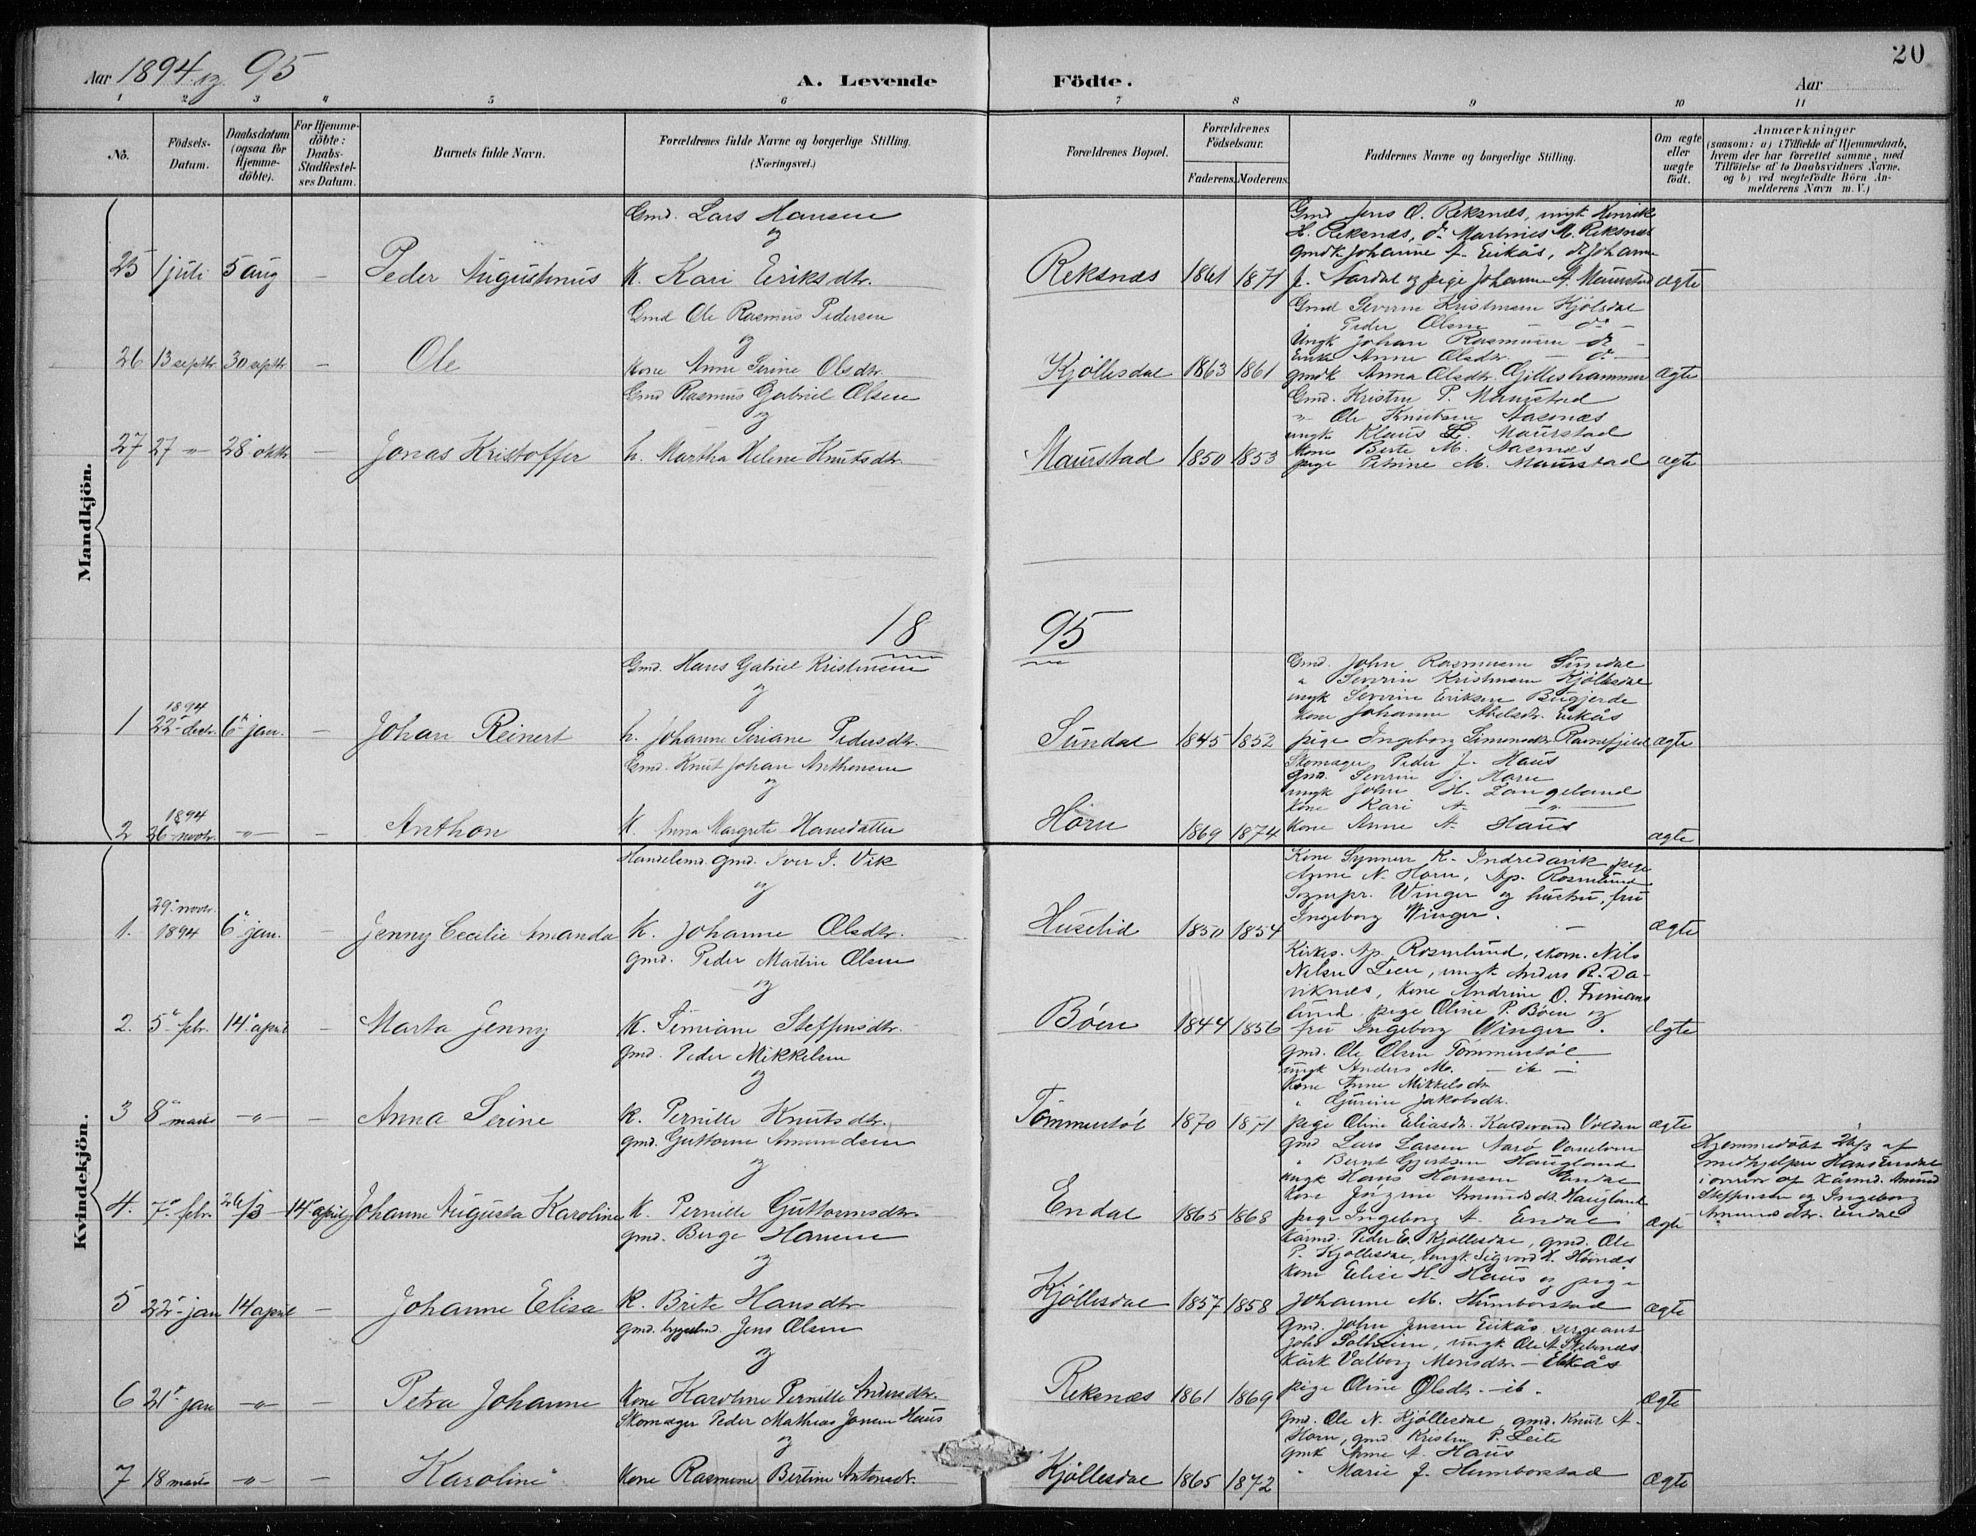 20
Aar 1894 og 95
A. Levende Födte.
Aar
1 2 3 4 5 6 7 8 9 10 11
No.
Födsels-Datum.
Daabsdatum (ogsaa for Hjemme-döbte).
For Hjemme-döbte: Daabs-Stadfæstel-ses Datum.
Barnets fulde Navn.
Forældrenes fulde Navne og borgerlige Stilling. (Næringsvei.)
Forældrenes Bopæl.
Forældrenes Födselsaar.
Faderens. Moderens.
Faddernes Navne og borgerlige Stilling.
Om ægte eller uægte födt.
Anmærkninger
(saasom: a) i Tilfælde af Hjemmedaab,
hvem der har forrettet samme, med
Tilföielse af to Daabsvidners Navne,
og b) ved uægtefödte Börn An-
melderens Navn m. V.)
Mandkjön.
Gmd. Lars Hansen
og
25 1 juli 5 aug – Peder Augustinus K. Kari Eriksdtr. Reksnæs 1861 1871 ægte
Gmd Jens O. Reksnæs, ungk Henrik
H. Reksnæs, do Martines M. Reksnæs
gmdk Johanne A. Eikås, do Johanne
J. Nordal og pige Johanne A. Maurstad
Gmd Ole Rasmus Pedersen
og
26 13 septbr 30 septbr – Ole Kone Anne Serine Olsdtr. Kjöllesdal 1863 1861 ægte
Gmd Severin Kristensen Kjölsdal
" Peder Olsen – do –
Ungk Johan Rasmussen do –
Enke Anne Olsdtr. – do –
gmdk Anna Olsdtr. Gilleshammer
Gmd Rasmus Gabriel Olsen
og
27 27 " 28 oktbr – Jonas Kristoffer h. Martha Helene Knutsdtr. Maurstad 1850 1853 ægte
Gmd. Kristen P. Maurstad
" Ole Knutsen Aasnæs
ungk Klaus L. Maurstad
Kone Berte M. Aasnæs
pige Petrine M. Maurstad
18 95
Gmd. Hans Gabriel Kristensen
og
1 1894 22 decbr. 6 jan. – Johan Reinert h. Johanne Seriane Pedersdtr. Sundal 1845 1852 ægte
Gmd. John Rasmussen Sundal
" Severin Kristensen Kjöllesdal
ungk Severin Eriksen Bugjerde
Kone Johanne Abelsdtr. Eikås
pige Ingeborg Simonsdtr. Ramsfjeld
Gmd. Knut Johan Anthonsen
og
2 1894 26 novbr. –"– – Anthon K. Anna Margrete Hansdatter Horn 1869 1874 ægte
Skomager Peder J. Haus
Gmd. Severin J. Horn
ungk John H. Langeland
Kone Kari A. – " –
Kone Anne A. Haus
Kvindekjön.
Handelsmd. gmd. Iver I. Vik
og
1. 29 novbr. 1894 6 jan. – Jenny Cecilie Amanda K. Johanne Olsdtr. Huselid 1850 1854 ægte
Kone Synneve K. Indredavik, pige
Anne N. Horn, Ap. Rosenlund
Sognepr. Winger og hustru, fru
Ingeborg Winger.
gmd. Peder Martin Olsen
og
2. 5 febr. 14 april – Marta Jenny K. Simiane Steffensdtr. Böen 1844 1856 ægte
Kirkes. Ap. Rosenlund, skom. Nils
Nilsen Leen, ungk Anders R. Da-
viknæs, Kone Andrine O. Frimans-
lund, pige Oline P. Böen og
fru Ingeborg Winger.
gmd. Peder Mikkelsen
og
3 8 marts –"– – Anna Serine K. Pernille Knutsdtr. Tömmerstöl 1870 1871 ægte
gmd. Ole Olsen Tömmerstöl
ungk Anders M. – ib –
Kone Anne Mikkelsdtr.
" Gurine Jakobsdtr.
pige Oline Eliasdtr. Kaldevand Volden
gmd. Guttorm Amundsen
og
4. 7 febr. 26/3 – 14 april Johanne Augusta Karoline K. Pernille Guttormsdtr. Endal 1865 1868 ægte
gmd Lars Larsen Narö
" Bernt Gjertsen Haugland
ungk Hans Hansen Endal
Kone Jörgine Amundsdtr. Haugland
pige Ingeborg A. Endal
Hjemmedöbt 26/3 af
medhjelper Hans Endal
i overv. af Kaarmd. Amund
Steffensen og Ingeborg
Amundsdtr. Endal
gmd. Berge Hansen
og
5 22 jan 14 april – Johanne Elisa K. Brite Hansdtr. Kjöllesdal 1857 1858 ægte
Kårmd. Peder E. Kjöllesdal, gmd. Ole
P. Kjöllesdal, ungk Sigvard H. Hönnås
Kone Elise H. Haus og pige
Johanne M. Humborstad
gmd. Jens Olsen
og
6 21 jan –"– – Petra Johanne Kone Karoline Pernille Andersdtr. Reksnæs 1861 1869 ægte
gmd. John Jensen Eikås, sergeant
John Solheim, ungk Ole A.
Kårk Valborg Monsdtr. – Eikås
pige Oline Olsdtr. – ib.
Skomager Peder Mathias Jonsen Haus
og
7 18 marts –"– – Karoline Kone Rasmine Bertine Antonsdtr. Kjöllesdal 1865 1872 ægte
gmd. Ole N. Kjöllesdal, gmd. Knut A.
Horn, gmd. Kristen P. Leite
gmk Anne A. Haus
" Marie J. Humborstad